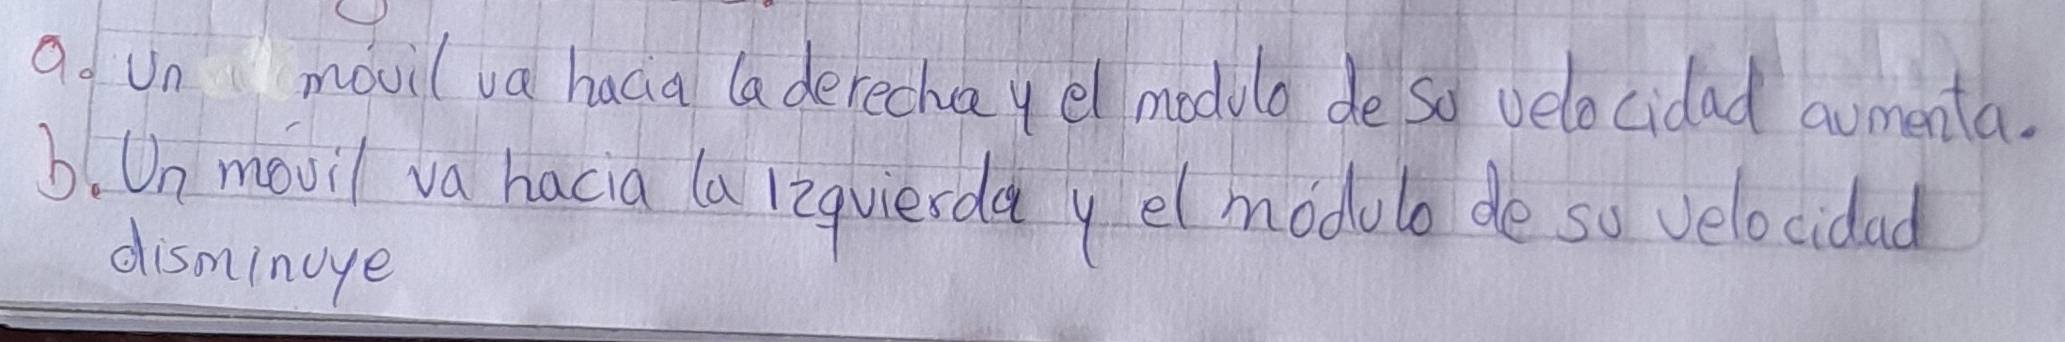 a. Un móvil va hacia la derecha y el modulo de su velocidad aumenta.
b. Un móvil va hacia la izquierda y el módulo de su velocidad
disminuye